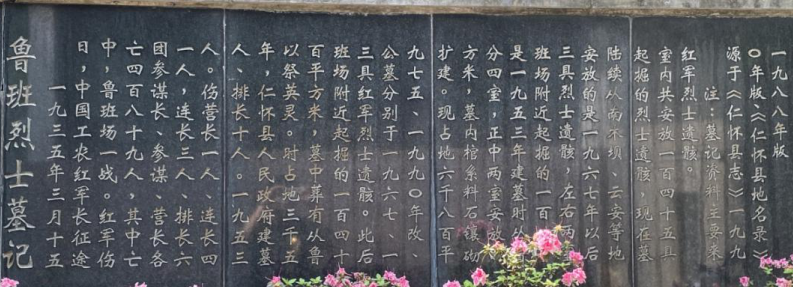 鲁班烈士墓记
一九三五年三月十五
日，中国工农红军长征途
中，鲁班场一战。红军伤
亡四百八十九人，其中亡
团参谋长、参谋、营长各
一人，连长三人、排长六
人。伤营长一人、连长四
人、排长十人。一九五三
年，仁怀县人民政府建墓
以祭英灵。时占地三千五
百平方米，墓中葬有从鲁
班场附近起掘的一百四十
三具红军烈士遗骸。此后
公墓分别于一九六七、一
九七五、一九九〇年改、
扩建。现占地六千八百平
方米，墓内棺系料石镶砌
分四室，正中两室安放
是一九五三年建墓时从
班场附近起掘的一百
三具烈士遗骸，左右两
安放的是一九六七年以后
陆续从南不坝、云安等地
起掘的烈士遗骸 现在墓
室内共安放一百四十五具
红军烈士遗骸。
注：墓记资料主要来
源于《仁怀县志》一九九
〇年版、《仁怀县地名录》
一九八八年版